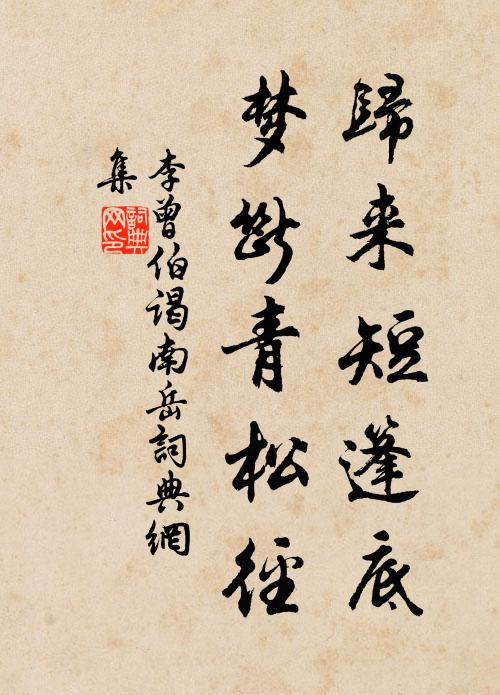 歸来短蓬底
梦断青松徑
李曾伯谒南岳詞典網
集
詞典网印